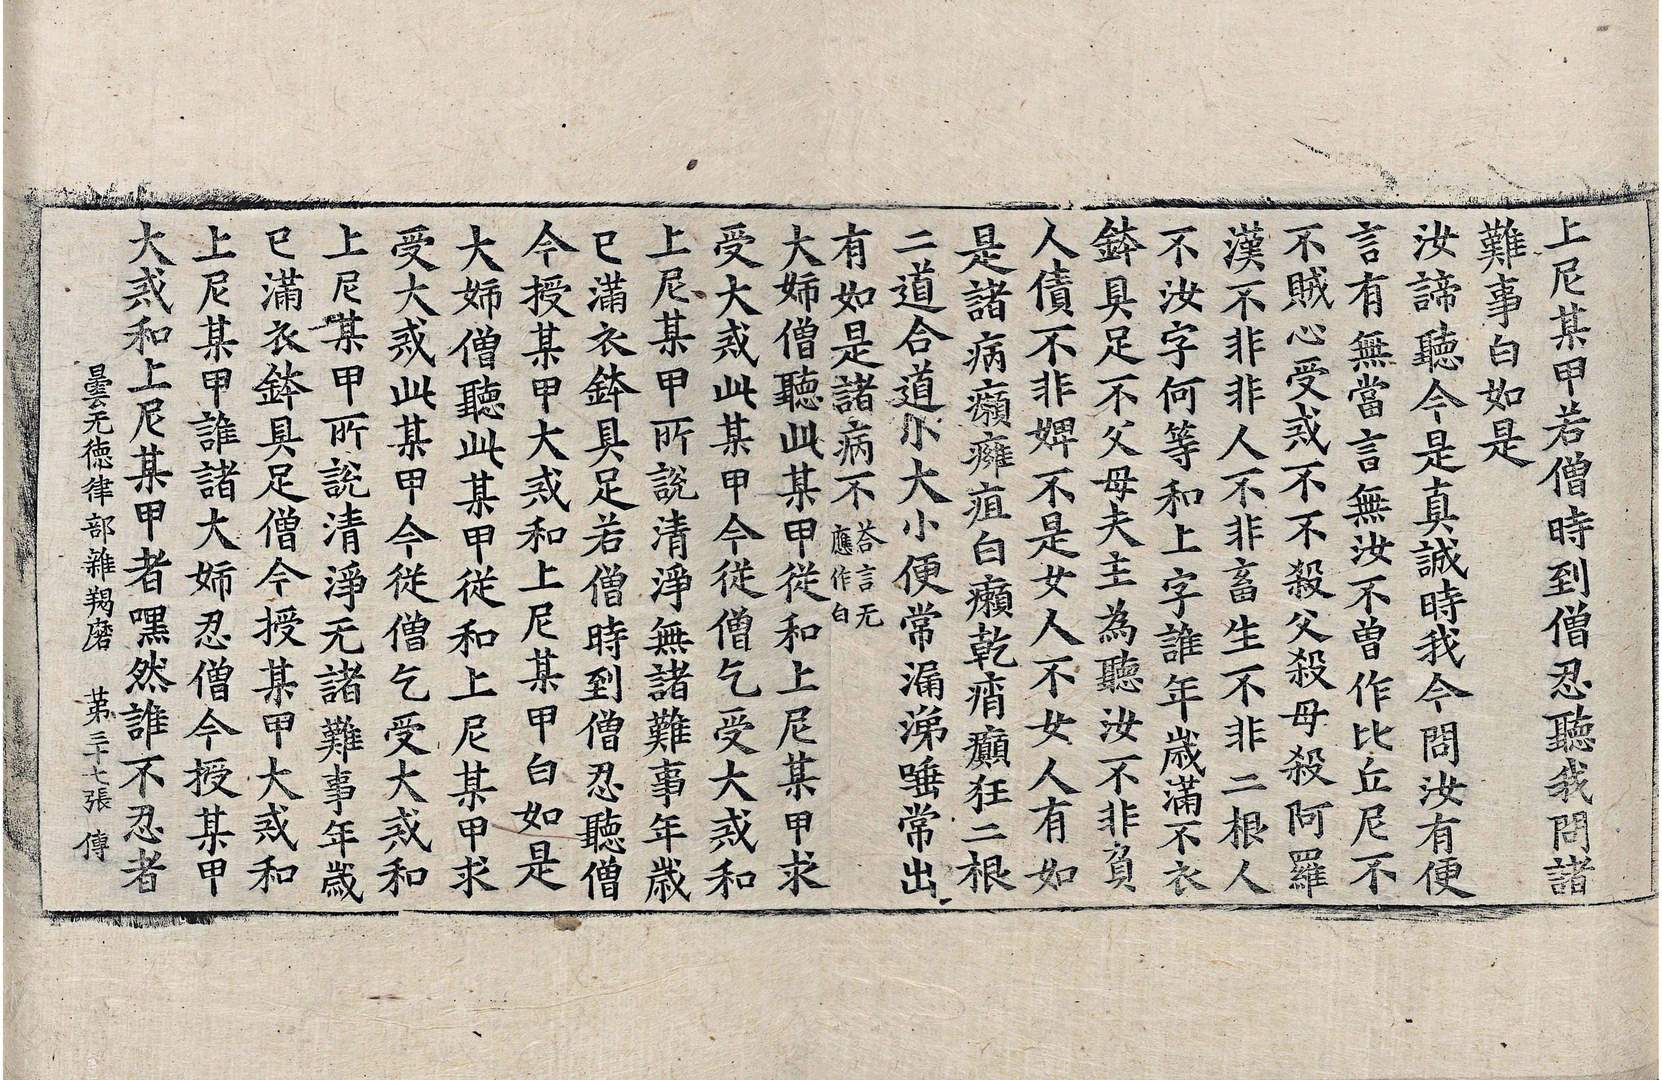 上尼某甲若僧時到僧忍聽我問諸
難事白如是
汝諦聽今是真誠時我今問汝有便
言有無當言無汝不曽作比丘尼不
不賊心受戒不不殺父殺母殺阿羅
漢不非非人不非畜生不非二根人
不汝字何等和上字誰年歲滿不衣
鉢具足不父母夫主為聽汝不非負
人債不非婢不是女人不女人有如
是諸病癩癰疽白癩乾痟癲狂二根
二道合道小大小便常漏涕唾常出
有如是諸病不荅言无應作白
大姊僧聽此某甲從和上尼某甲求
受大戒此某甲今從僧乞受大戒和
上尼某甲所說清淨無諸難事年歲
已滿衣鉢具足若僧時到僧忍聽僧
今授某甲大戒和上尼某甲白如是
大姊僧聽此某甲從和上尼某甲求
受大戒此某甲今從僧乞受大戒和
上尼某甲所說清淨无諸難事年歲
已滿衣鉢具足僧今授某甲大戒和
上尼某甲誰諸大姊忍僧今授某甲
大戒和上尼某甲者嘿然誰不忍者
曇无德律部雜羯磨　第三十七張　傳